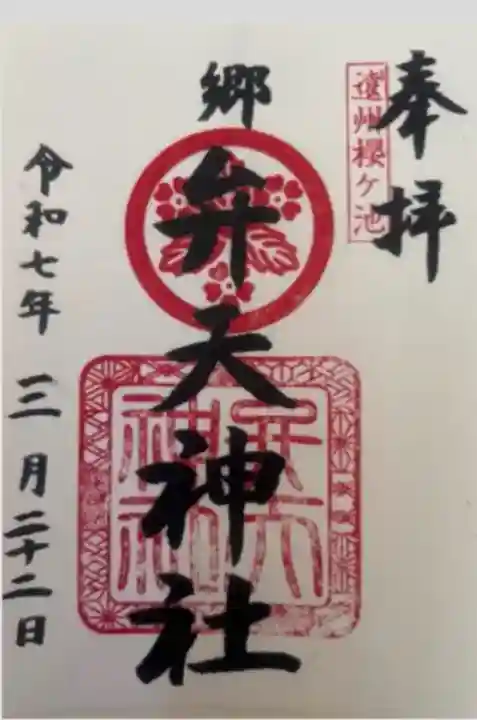 奉拝
遠州櫻ヶ池
郷
弁天神社
令和七年 三月二十二日